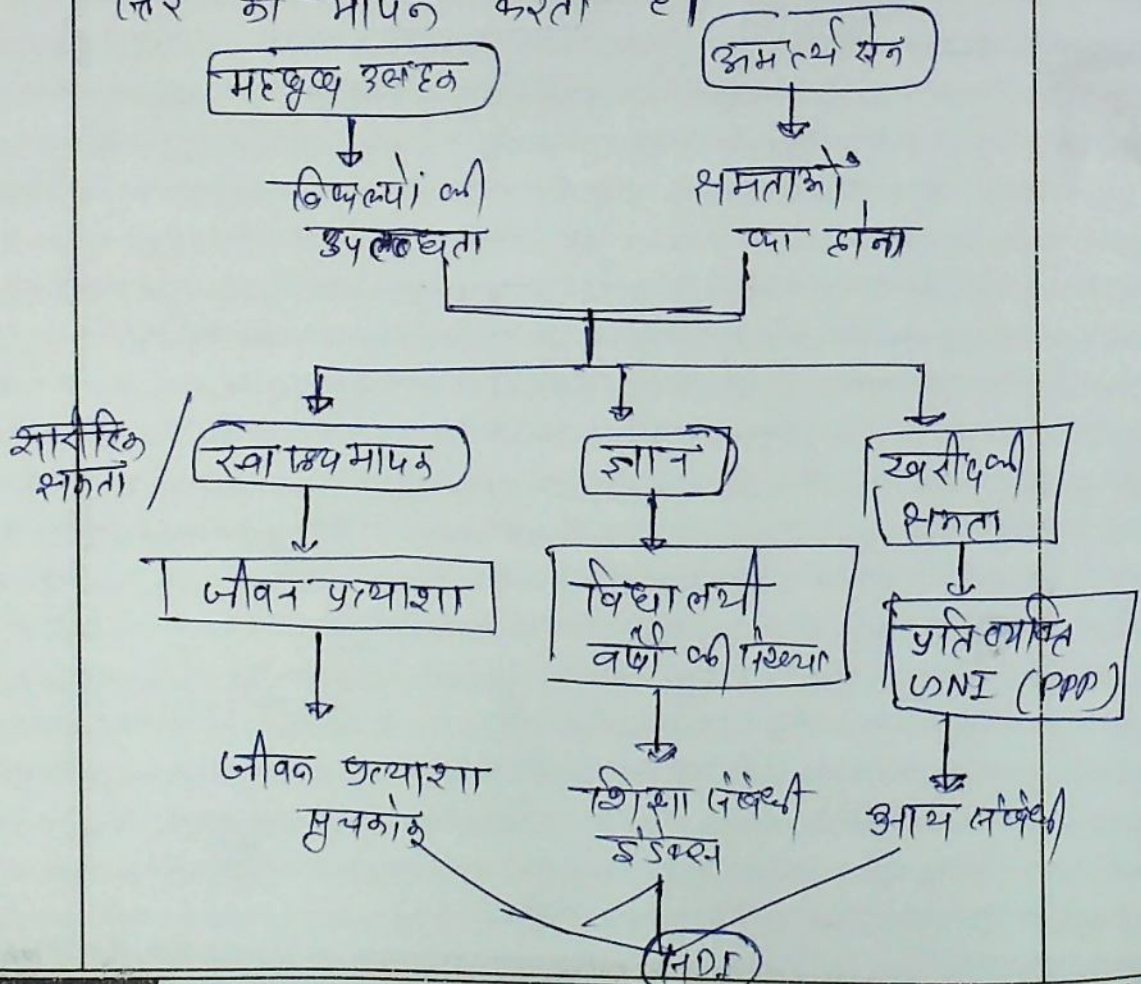 स्तर का मापन करता है।
महबूब उल हक
अमर्त्य सेन
विकल्पों की
उपलब्धता
क्षमताओं
का होना
शारीरिक
क्षमता
स्वास्थ्य मापक
ज्ञान
खरीद की
क्षमता
जीवन प्रत्याशा
विद्यालयी
वर्षों की संख्या
प्रति व्यक्ति
GNI (PPP)
जीवन प्रत्याशा
सूचकांक
शिक्षा संबंधी
इंडेक्स
आय संबंधी
HDI